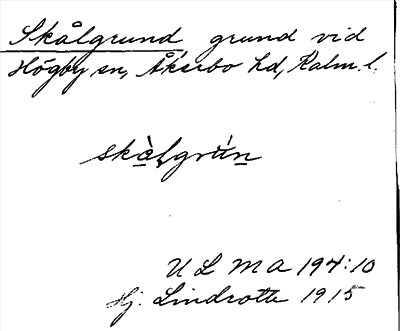 Skålgrund, grund vid
Högby sn, Åkerbo hd, Kalm. l.
skàlgrún
U L M A 194:10
Hj. Lindroth 1915